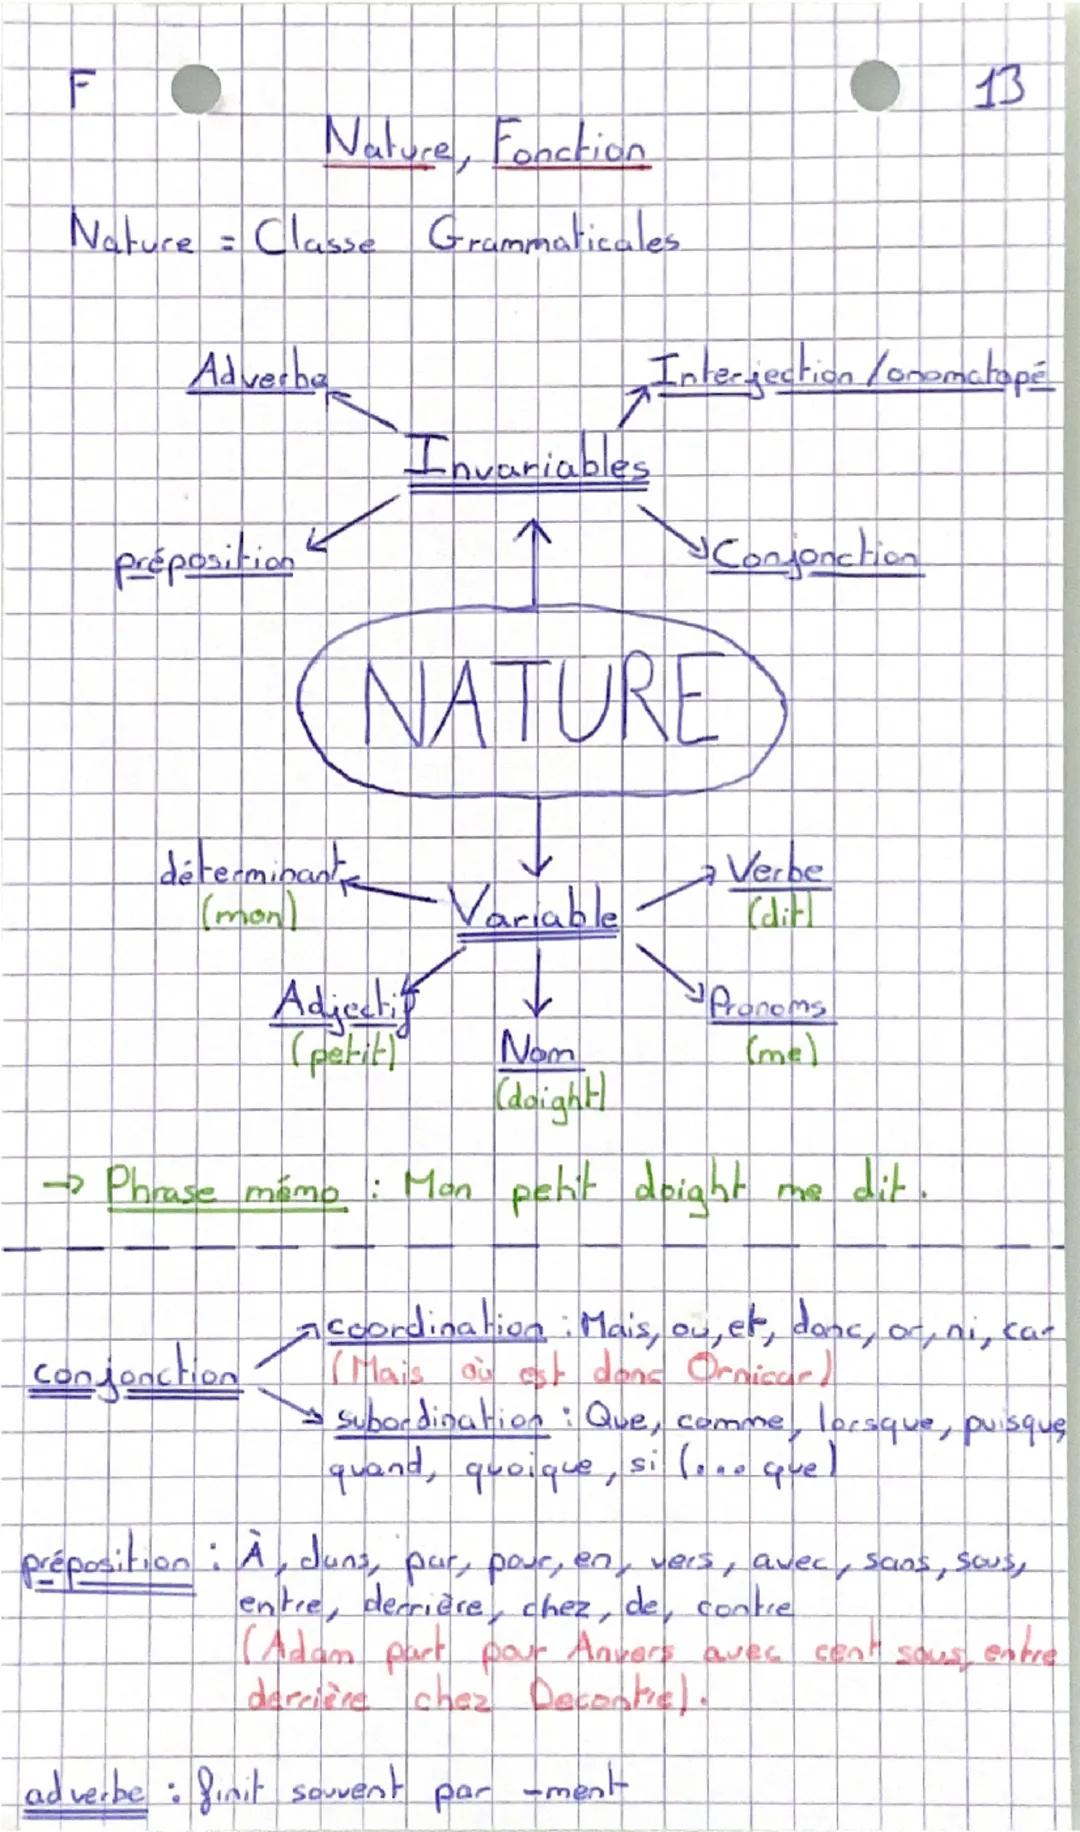 F 13
Nature, Fonction
Nature = Classe Grammaticales
Adverbe Interjection / onomatopé
Invariables
préposition Conjonction
NATURE
déterminant Verbe
(mon) Variable (dit)
Adjectif Pronoms
(petit) Nom (me)
(doight)
→ Phrase mémo : Mon petit doight me dit.
coordination : Mais, ou, et, donc, or, ni, car
conjonction (Mais où est donc Ornicar)
subordination : Que, comme, lorsque, puisque,
quand, quoique, si (... que)
préposition : À, dans, par, pour, en, vers, avec, sans, sous,
entre, derrière, chez, de, contre
(Adam part pour Anvers avec cent sous, entre
derrière chez Decontre).
adverbe : finit souvent par -ment